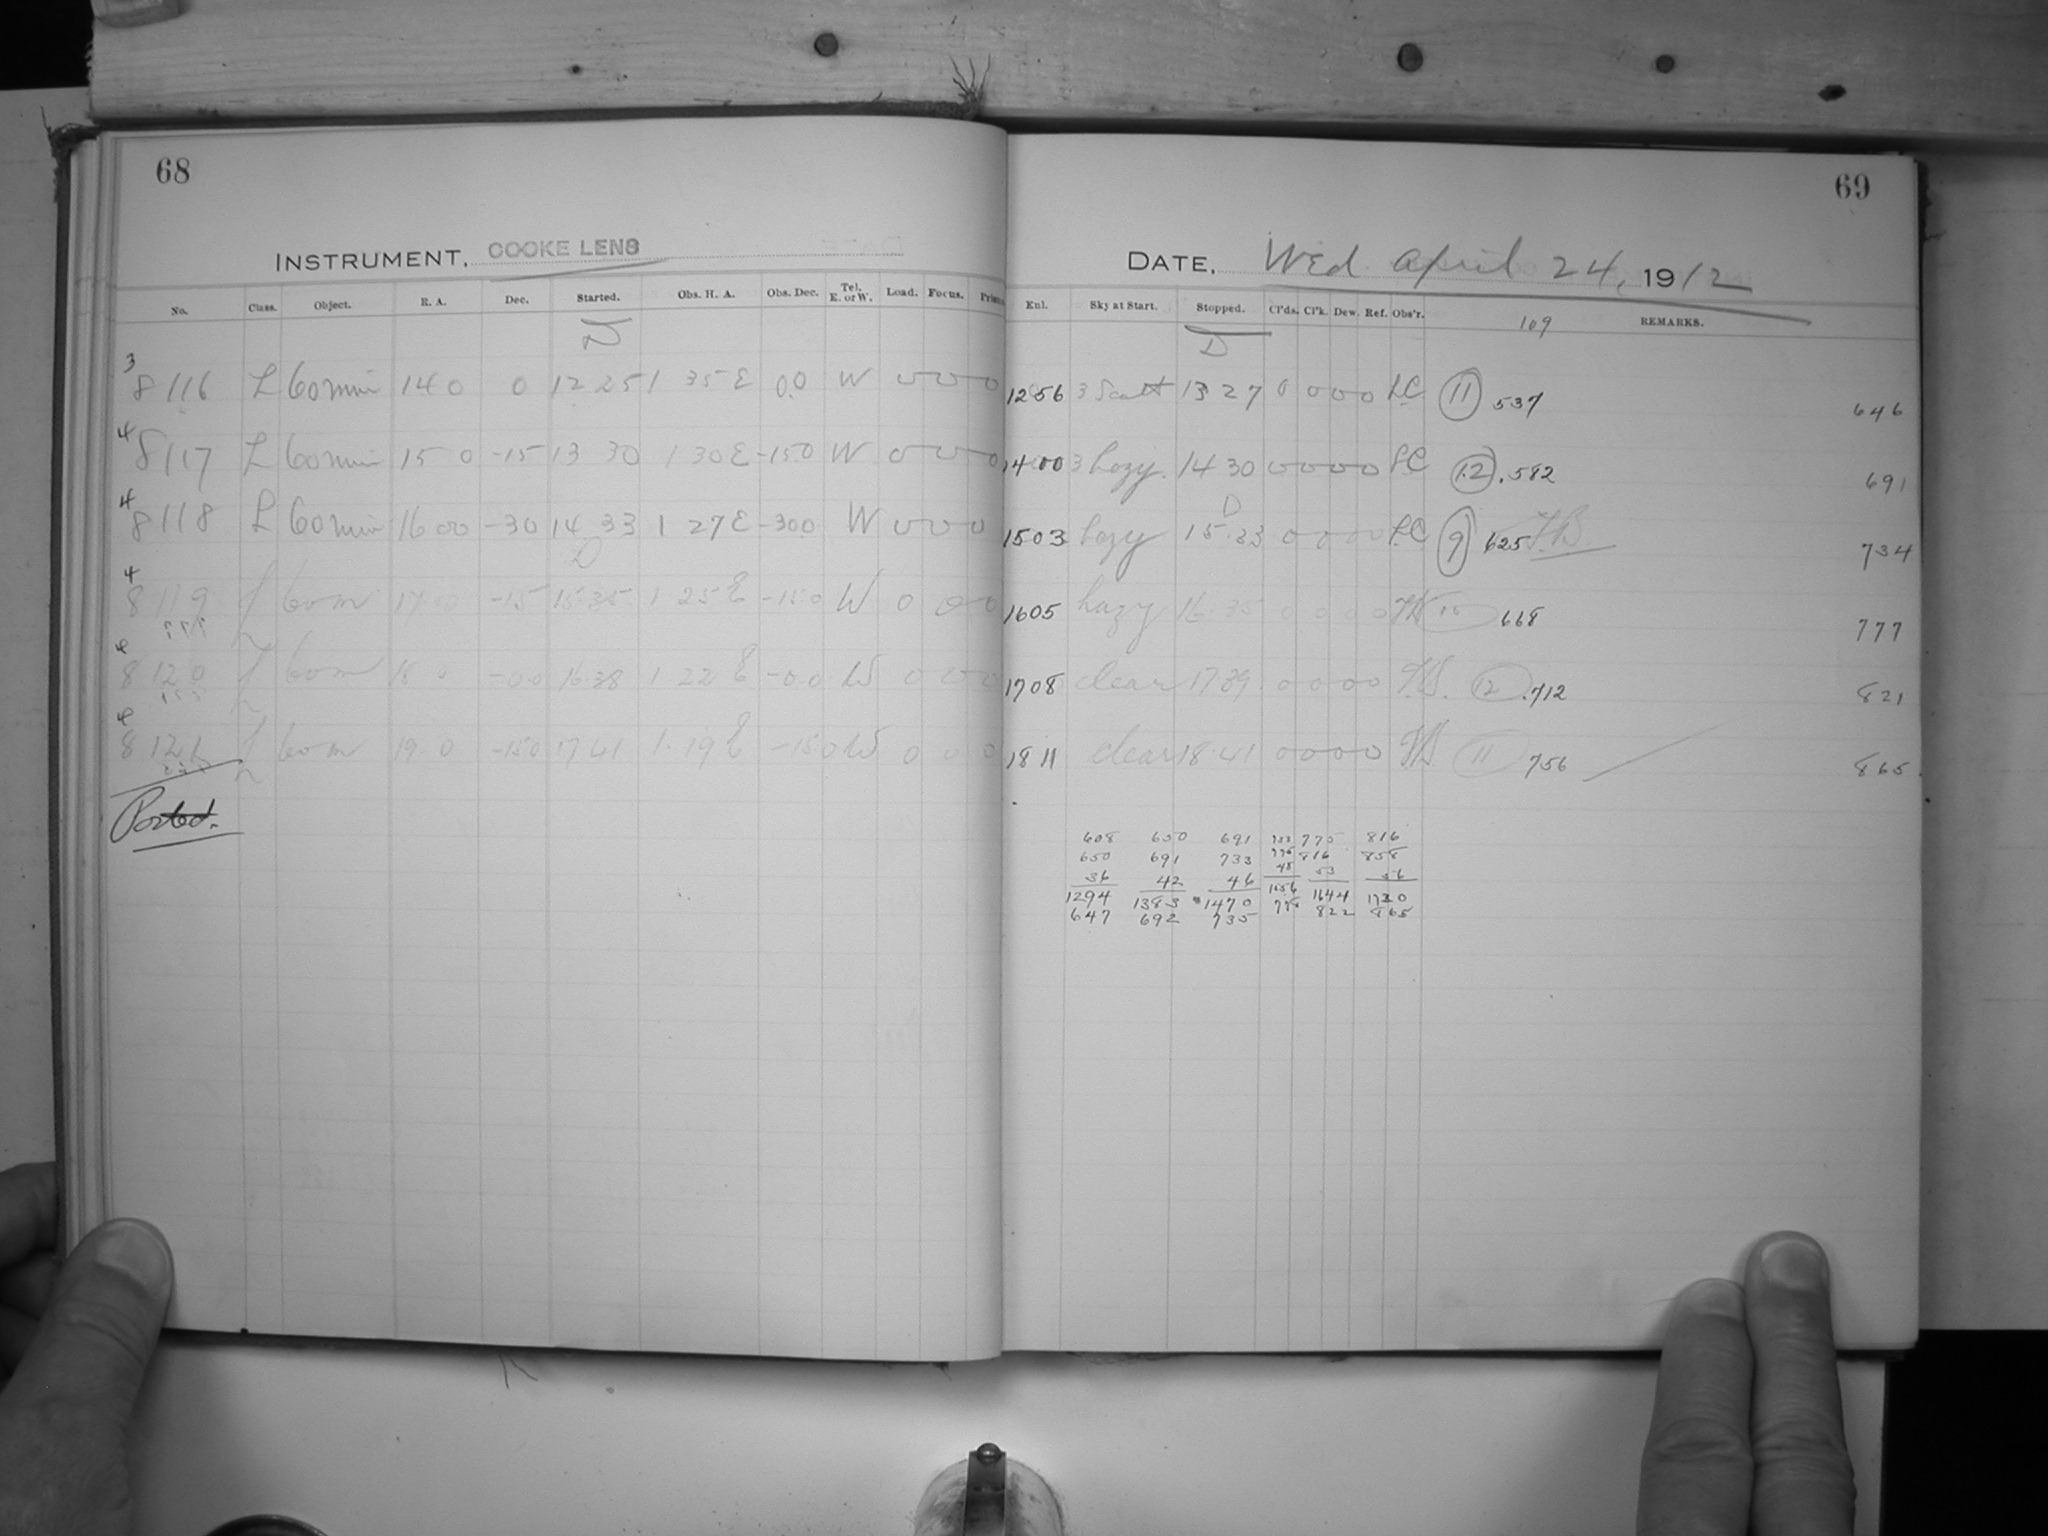 68
INSTRUMENT, COOKE LENS
No. Class. Object. R. A. Dec. Started. Obs. H. A. Obs. Dec. Tel. E. or W. Load. Focus. Prism
D
3
8116 L 60 min 14 0 0 12 25 1 35 E 00 W 0 0 0 0
4
8117 L 60 min 15 0 -15 13 30 1 30 E -150 W 0 0 0 0
4
8118 L 60 min 16 00 -30 14 33 1 27 E -300 W 0 0 0 0
D
4
8119 60 m 17 -15 15 35 1 25 E -150 W 0 0 0
8120 60 m 18 0 -00 16 38 1 22 E -00 W 0 0 0
8121 60 m 19 0 -150 17 41 1 19 E -150 W 0 0 0
Posted.
69
DATE, Wed April 24, 1912
Enl. Sky at Start. Stopped. Cl'ds. Cl'k. Dew. Ref. Obs'r. 109 REMARKS.
D
1256 3 Scatt 13 27 0 0 0 0 LC 11 537 646
1400 3 hazy. 14 30 0 0 0 0 LC 12 .582 691
D
1503 hazy 15 33 0 0 0 0 LC 9 625 734
1605 hazy 16 35 0 0 0 0 668 777
1708 clear 17 39 0 0 0 0 12 .712 821
1811 clear 18 41 0 0 0 0 11 756 865
608 650 691 733 775 816
650 691 733 775 816 858
36 42 46 48 53 56
1294 1383 1470 1556 1644 1730
647 692 735 778 822 865